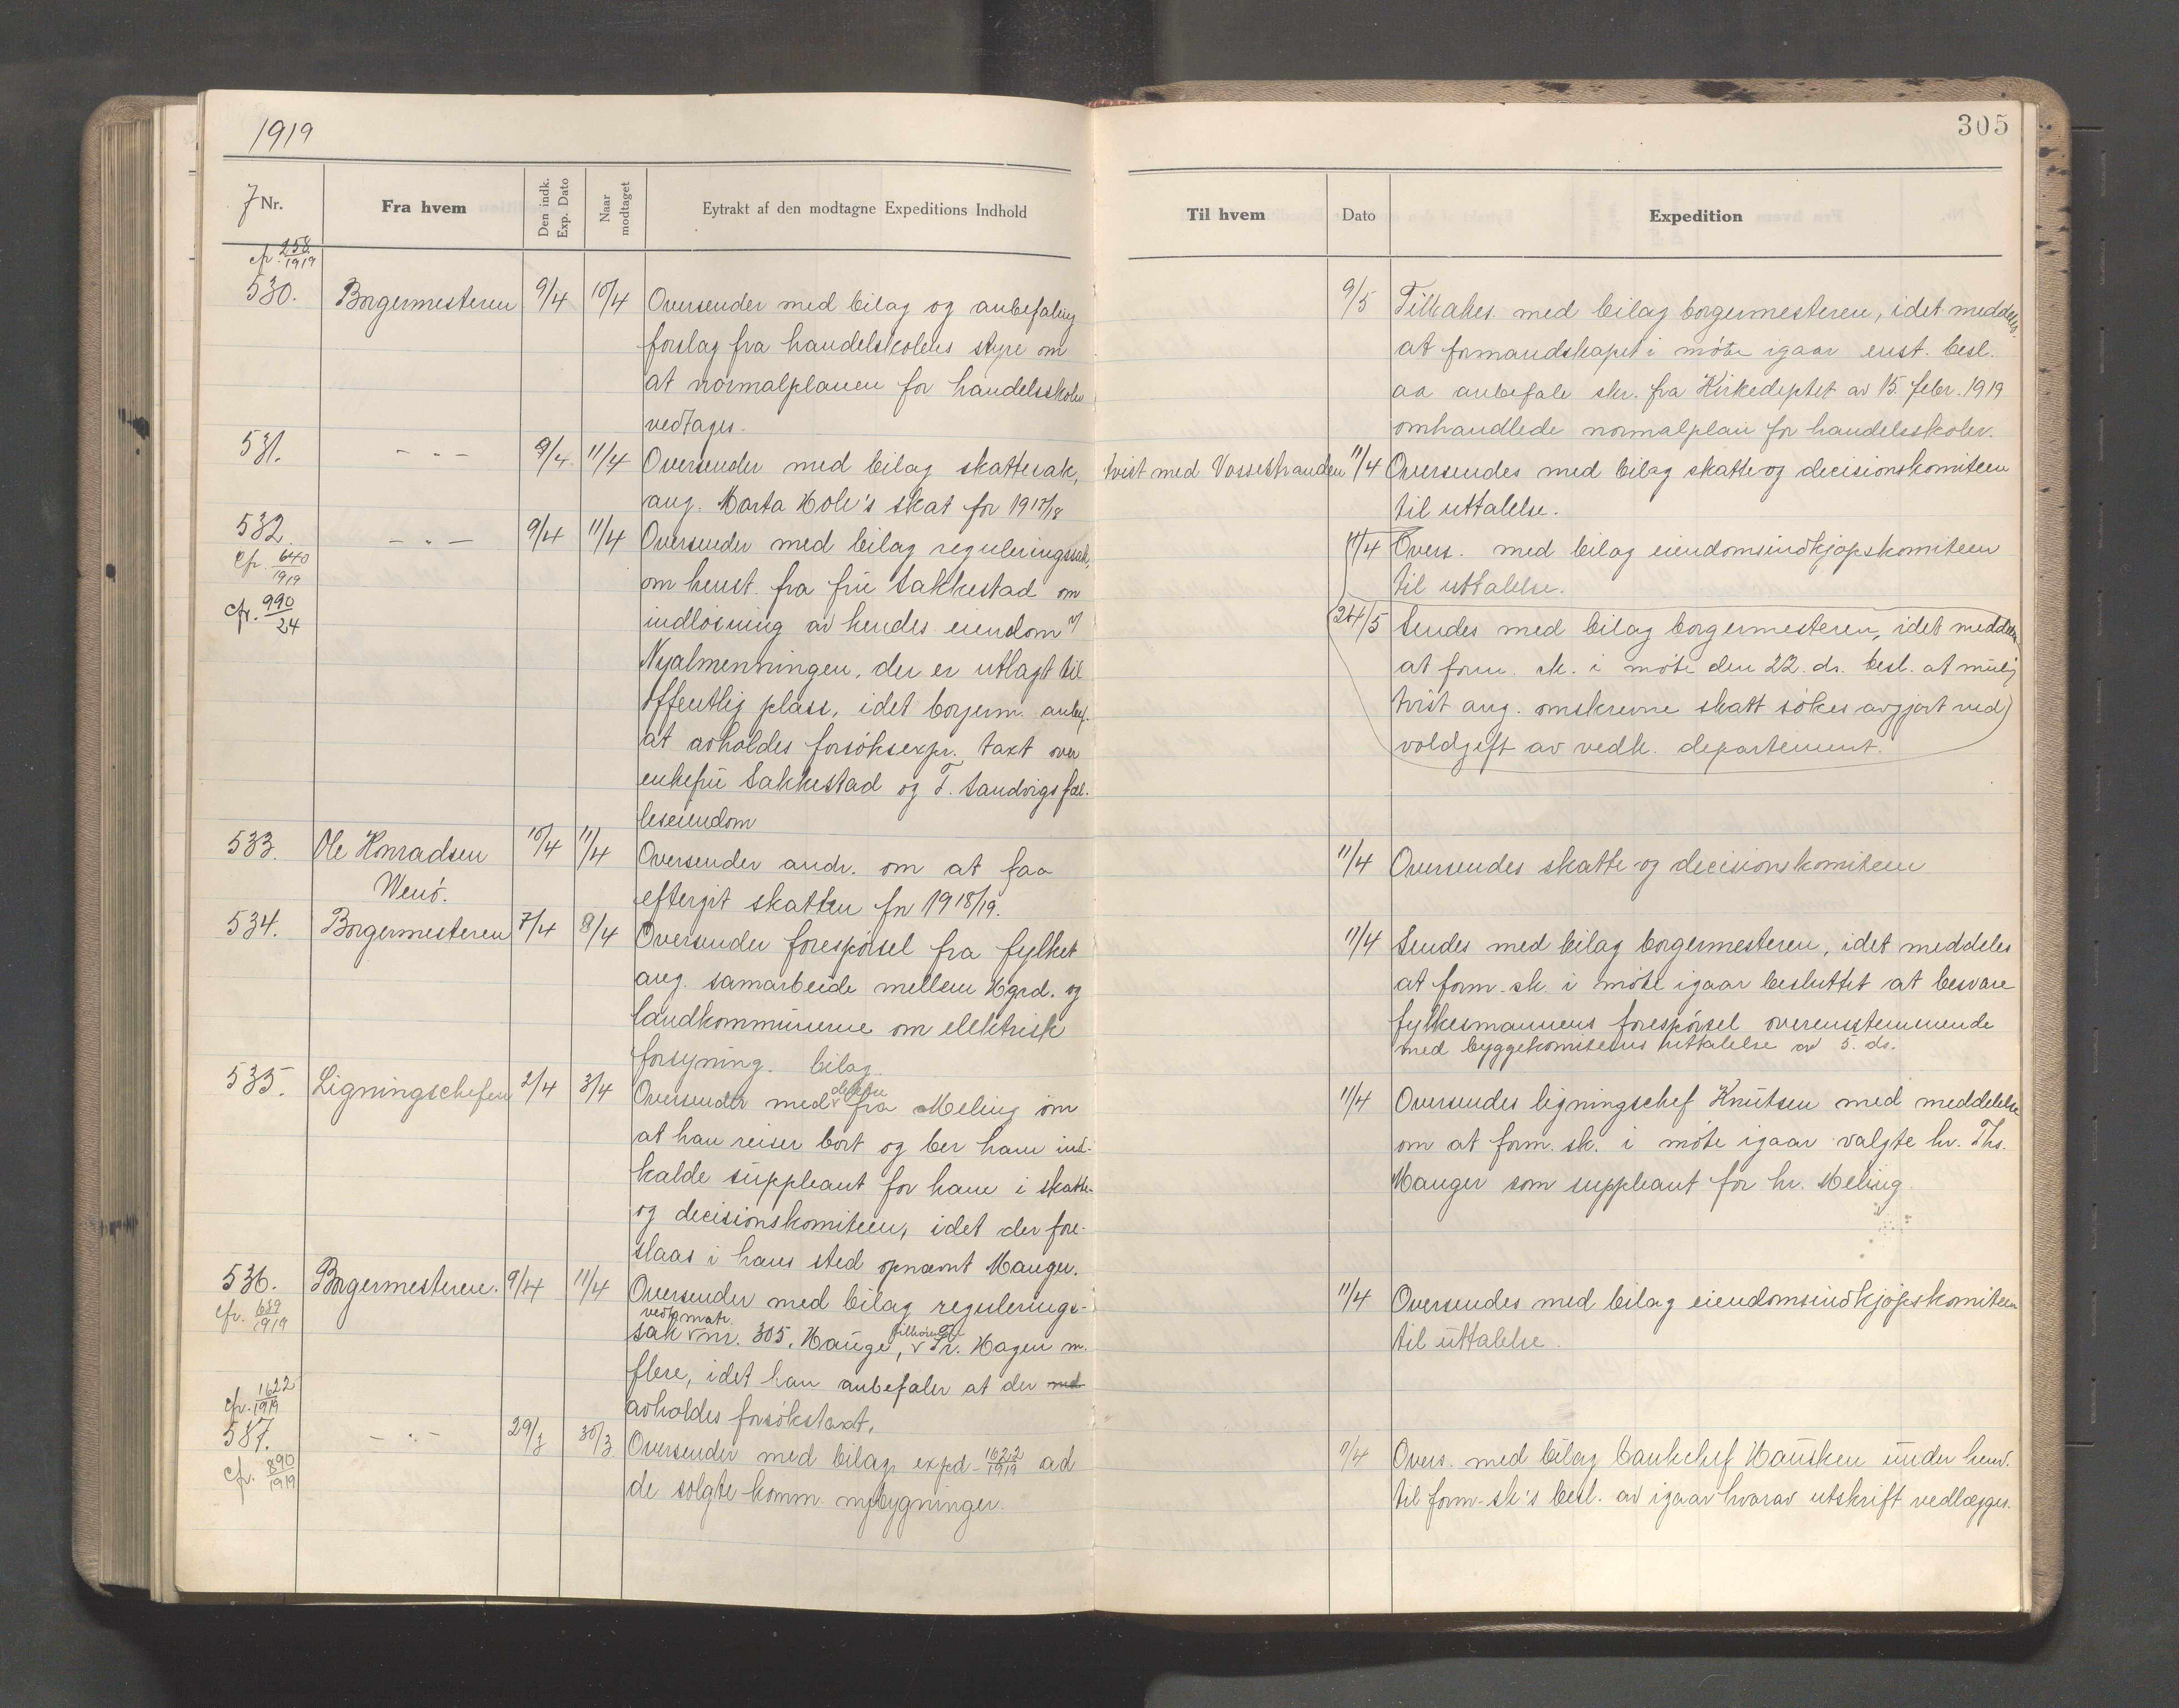 1919
J Nr.
Fra hvem
Den indk. Exp. Dato
Naar modtaget
Eytrakt af den modtagne Expeditions Indhold
cfr. 258/1919
530. Borgermesteren 9/4 10/4 Oversender med bilag og anbefaling
forslag fra handelskolens styre om
at normalplanen for handelsskoler
vedtages.
531. - " - 9/4 11/4 Oversender med bilag skattesak,
ang. Marta Hole's skat for 1917/18
532. - " - 9/4 11/4 Oversender med bilag reguleringssak,
cfr. 640/1919
om henst. fra frü Sakkestad om
cfr. 990/24
indløsning av hendes eiendom i
Nyalmenningen, der er utlagt til
offentlig plass, idet borgerm. anbef.
at avholdes forsøksexpr. taxt over
enkefrü Sakkestad og T. Sandvigs fæl-
leseiendom
533. Ole Konradsen 10/4 11/4 Oversender andr. om at faa
Wenö.
eftergit skatten for 1918/19.
534. Borgermesteren 7/4 8/4 Oversender forespørsel fra fylket
ang. samarbeide mellem Hgrd. og
landkommunerne om elektrisk
forsyning. bilag.
535. Ligningschefen 2/4 3/4 Oversender meddelelse fra Meling om
at han reiser bort og ber ham ind-
kalde suppleant for ham i skatte-
og decisionskomiteen, idet der fore-
slaas i hans sted opnævnt Manger.
536. Borgermesteren. 9/4 11/4 Oversender med bilag regulerings-
cfr. 639/1919
sak vedk. matr. nr. 305, Hauge, tilhör. Tr. Hagen m.
flere, idet han anbefaler at der med
avholdes forsøkstaxt.
cfr. 1622/1919
537. - " - 29/3 30/3 Oversender med bilag exped. 1622/1919 ad
cfr. 890/1919
de solgte komm. nybygninger.
305
Til hvem
Dato
Expedition
9/5 Tilbakes. med bilag borgermesteren, idet meddeles
at formandskapet i møte igaar enst. besl.
aa anbefale skr. fra Kirkedeptet av 15. febr. 1919
omhandlede normalplan for handelsskoler.
tvist med Vossestranden 11/4 Oversendes med bilag skatte og decisionskomiteen
til uttalelse.
11/4 Overs. med bilag eiendomsindkjøpskomiteen
til uttalelse.
24/5 Sendes med bilag borgermesteren, idet meddeles
at form. sk. i møte den 22. ds. besl. at mulig
tvist ang. omskrevne skatt søkes avgjort ved
voldgift av vedk. departement.
11/4 Oversendes skatte- og decisionskomiteen
11/4 Sendes med bilag borgermesteren, idet meddeles
at form. sk. i møte igaar besluttet at besvare
fylkesmannens forespørsel overensstemmende
med byggekomiteens uttalelse av 5. ds.
11/4 Oversendes ligningschef Knütsen med meddelelse
om at form. sk. i møte igaar valgte hr. Ths.
Manger som suppleant for hr. Meling.
11/4 Oversendes med bilag eiendomsindkjøpskomiteen
til uttalelse.
11/4 Overs. med bilag bankchef Hausken under henv.
til form. sk's besl. av igaar hvorav utskrift vedlægges.